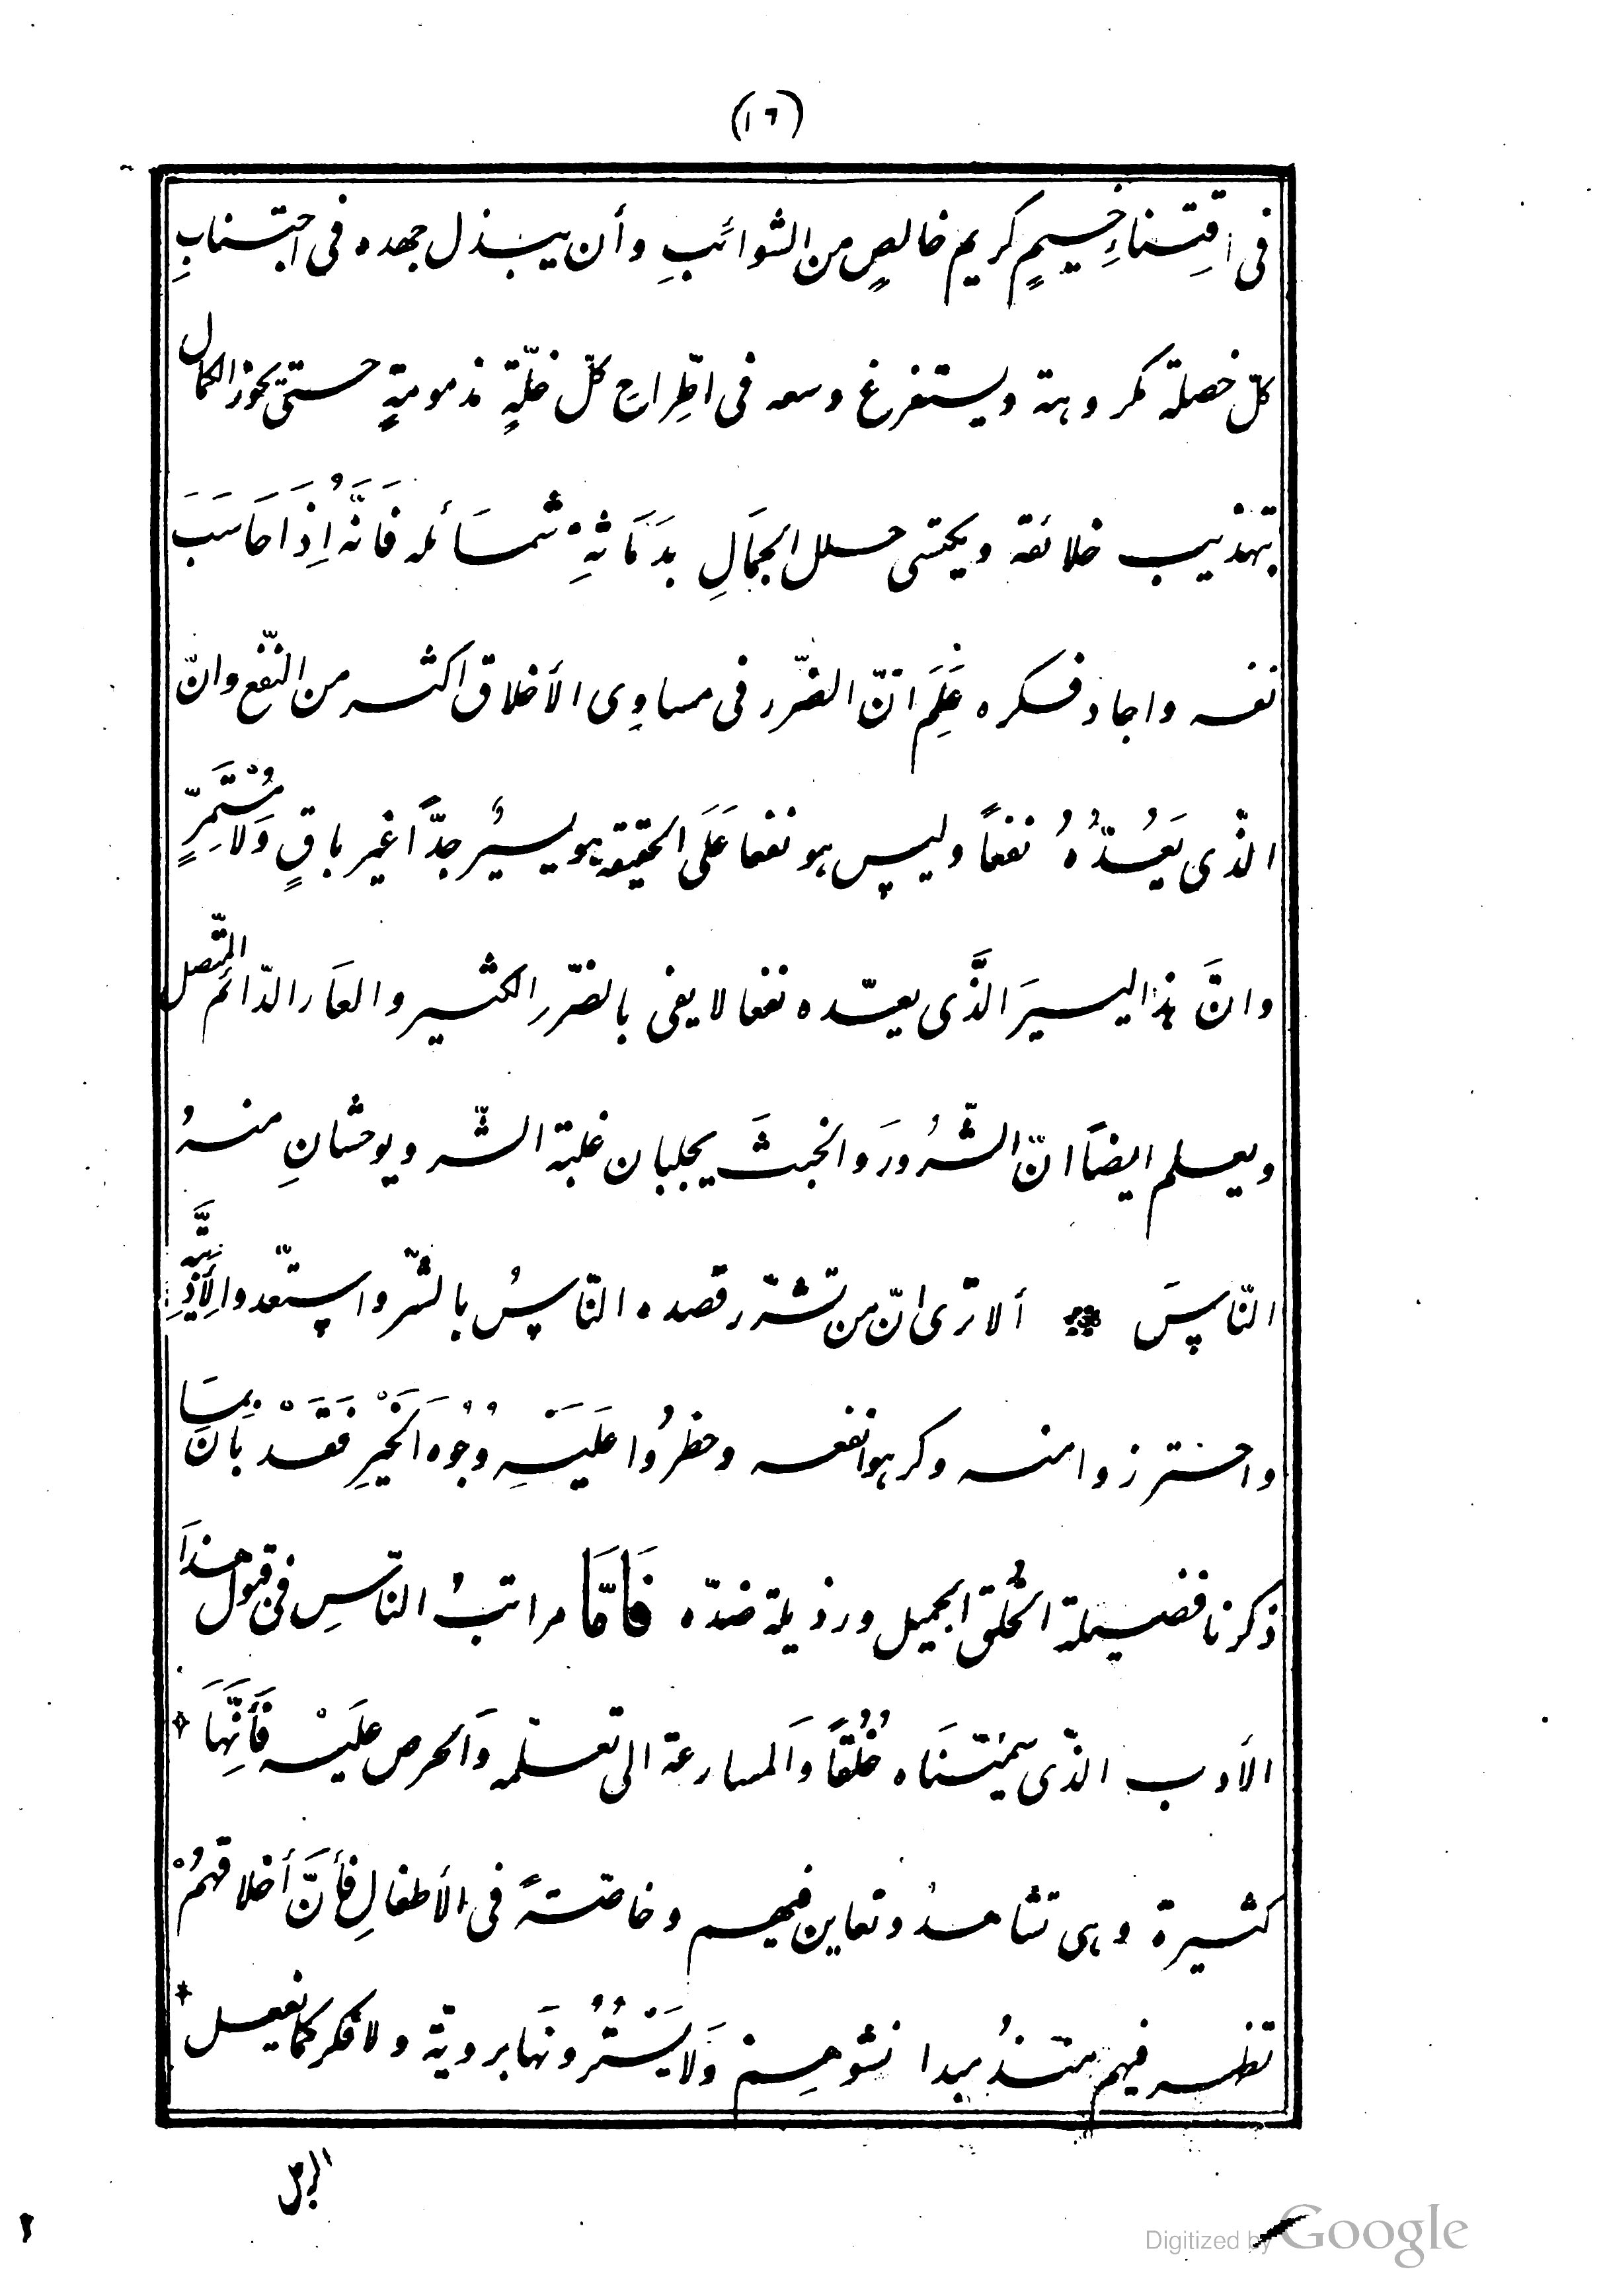 (١٦)
فى اقِتناءِ خِيمٍ كريم خالصٍ من الشوائبِ وأن يبذل جهده فى اجتنابِ
كلّ خصلة مكروهة ويستفرغ وسعه فى اطِّراحِ كلّ خلّةٍ مذمومةٍ حتىّ يحوزالكمال
بتهذيب خلائقه ويكتسى حلل الجمَالِ بدَمَاثهِ شمسَائله فَانَّهُ اِذَا حَاسَبَ
نفسه واجاد فكره عَلِمَ انّ الضّرر فى مساوِى الأخلاق اكثر من النّفع وانّ
الذّى يَعُدّهُ نفعاً وليس هو نفعا عَلَى الحقيقه هو يسيرٌ جدّاً غير باقٍ وَلا مُسْتَمَرٍّ
وانَّ هذا اليسيرَ الذَّى يعدّه نفعا لا يفى بالضّرر الكثير والعَار الدّائم المتّصل
ويعلم ايضاً انّ الشّرُورَ وَالخبثَ يجلبان غلبة الشّر ويوحشانِ منهُ
النّاسَ ❊ ألا ترى انّ من تشرّر قصده النّاسُ بالشّر واستعّدوا لِأَذِيَّتِه
واحترزوا منه وكرهوا نفعه وحظرُوا عَليَهِ وُجُوْهَ الَخيْرِ فَقَدْ بَانَ بمِسَا
ذكرنا فضيلة الخُلق الجميل ورذيلة ضدّه فَأمّاَ مراتبُ النّاسِ فى قبول هذا
الأدب الذّى سميّنَاه خُلُقاً وَالمسارعة الى تعلّمه وَالحرص عليَْه فَأَنِّهَاَ
كثيرة وهى تشاهدُ وتعاين فيهم وخاصّةً فى الأطفالِ فأَنَّ أخلاقهمُْ
تظهر فيهم منذُ مبدا نشوهِم وَلا يَسْتُرُونَهَا بروية ولا فكر كما يفعل
الرجل
Digitized by Google